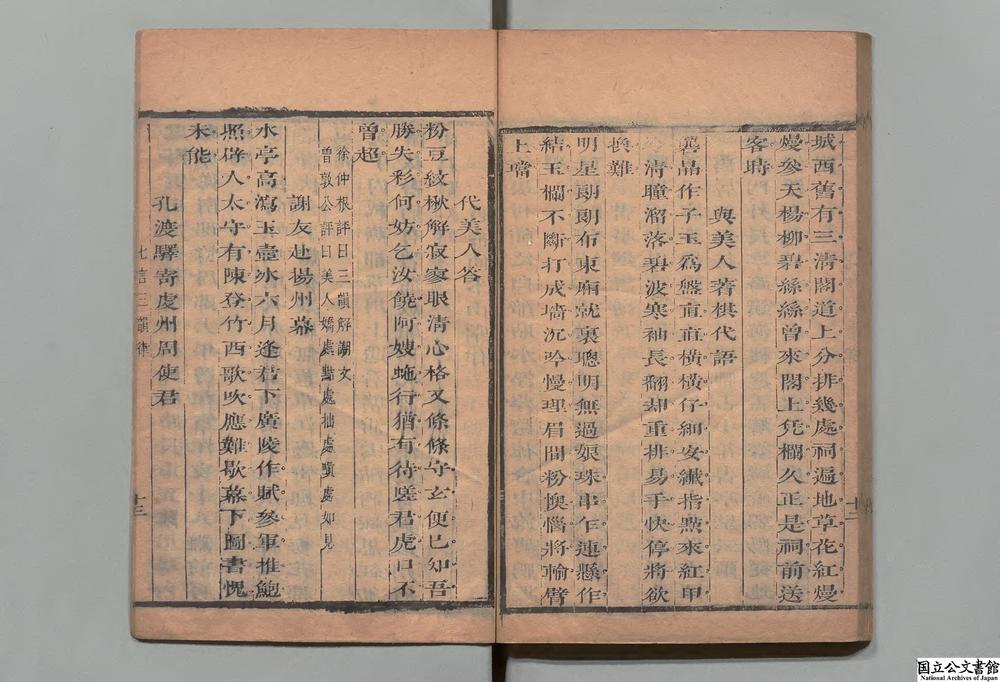 城西舊有三清閣道上分排幾處祠遍地草花紅熳
熳參天楊柳碧絲絲曾來閣上凭欄久正是祠前送
客時
與美人著棋代語
晶作子玉爲盤直直橫橫仔細安纖指點來紅甲
清瞳溜落碧波寒袖長翻却重排易手快停將欲
難
明星朗朗布東廂就裏聰明無過娘珠串乍連懸作
結玉欄不斷打成墻沉吟慢理眉間粉懊惱將輸臂
上璫
十
代美人答
粉豆紋楸解寂寥眼清心格又條條守玄便已知吾
勝失彩何妨乞汝饒阿嫂虵行猶有待嗟君虎口不
曾超
徐仲根評曰三韻解嘲文
曾敦公評曰美人嬌處黠處拙處嗔處如見
謝友赴揚州幕
水亭高瀉玉壺冰六月逢君下廣陵作賦參軍推鮑
照辟人太守有陳登竹西歌吹應難歇幕下圖書愧
未能
孔渡驛寄虔州周使君
七言三韻律
十三
国立公文書館
National Archives of Japan